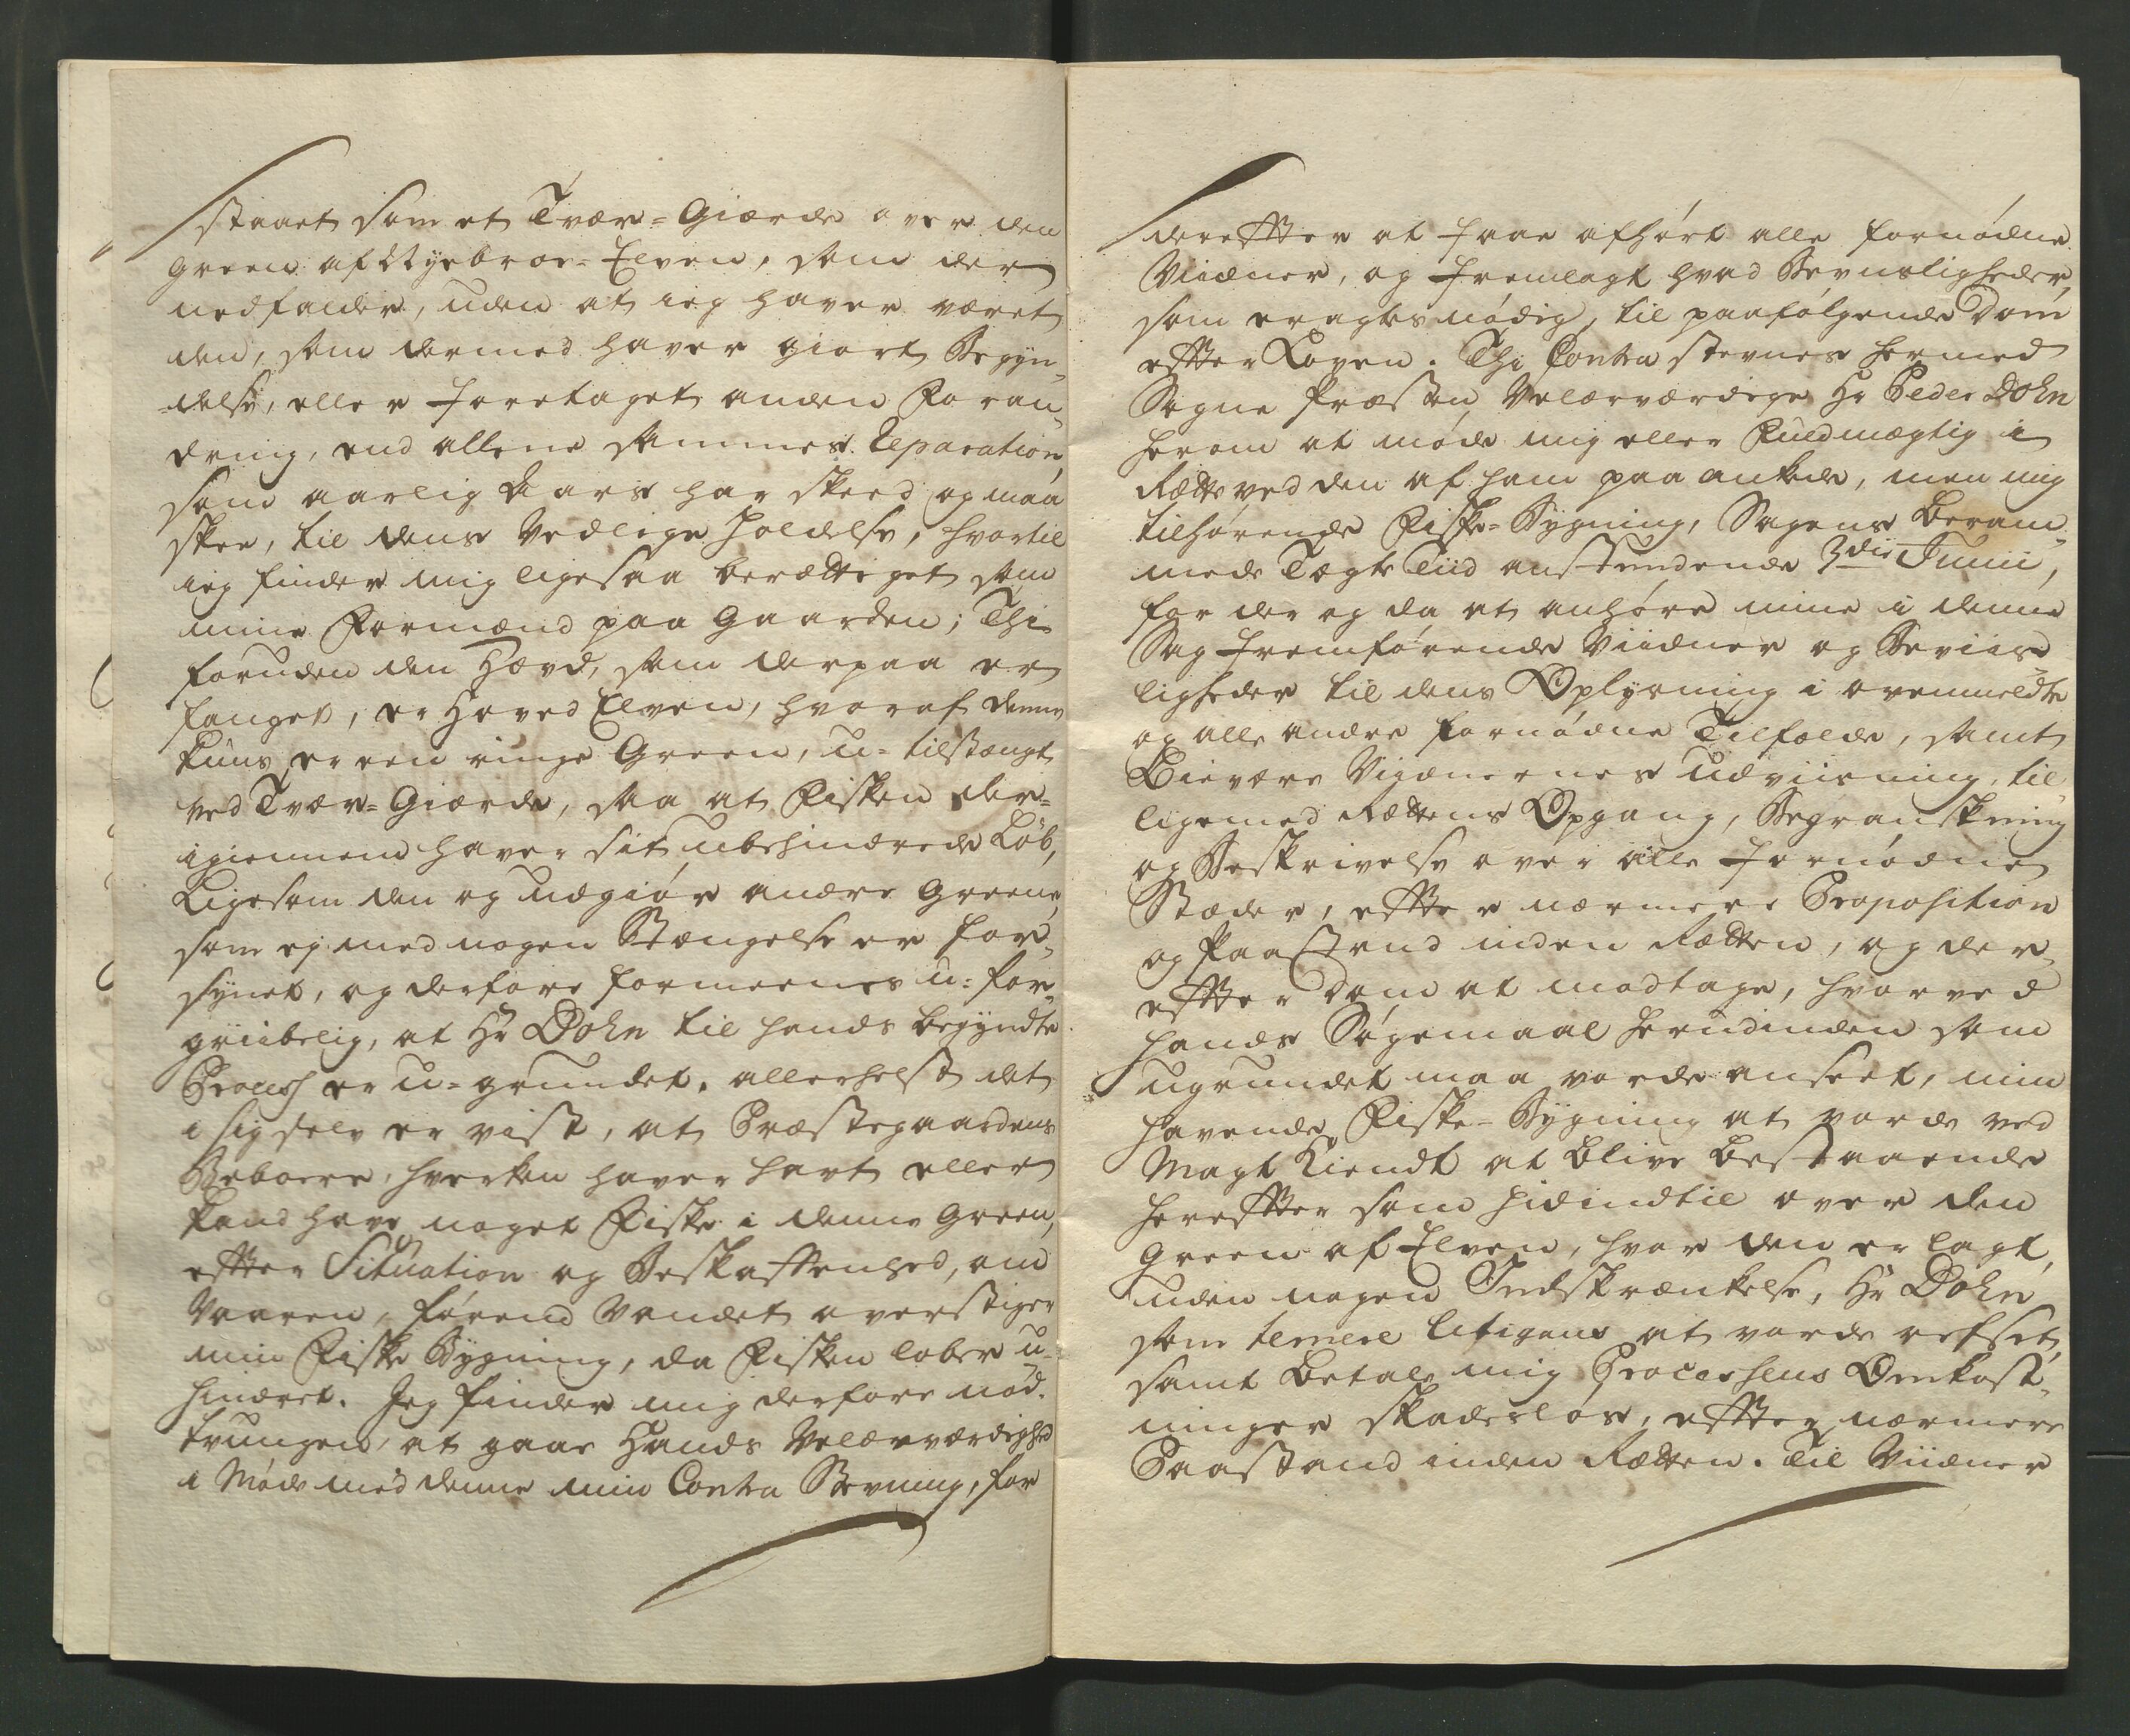 staaet som et Tvær=Giærde over den
Green af Myebroe=Elven, som der
nedfalder, uden at ieg haver været
den, som dermed haver giort Begyn-
delse, eller foretaget anden Foran-
dring, end allene sammes Reparation,
som aarlig Aars har skeed og maa
skee, til dens Vedlige Holdelse, hvortil
ieg finder mig ligesaa berættiget som
mine Formænd paa Gaarden; Thi
foruden den Hævd, som derpaa er
fanget, er Hoved Elven, hvoraf denne
kuns er een ringe Green, u=tilstængt
ved Tvær=Giærde, saa at Fisken der-
igiennem haver sit ubehindrede Løb,
Ligesom den og udgiør andre Greene,
som ej med nogen Stængelse er for-
synet, og derfore formeenes u=for-
griibelig, at Hr Dohn til hands begyndte
Process er u=grundet. allerhelst det
i sig selv er vist, at Præstegaardens
Beboere, hverken haver havt eller
kand have noget Fiske i denne Green,
efter Situation og Beskaffenhed, om
Vaaren, førend Vandet overstiger
min Fiske Bygning, da Fisken løber u-
hindret. Jeg finder mig derfore nød-
trungen, at gaae Hands Velærværdighed
i Møde med denne min Contra Stevning, for
derefter at faae afhørt alle fornødne
Viidner, og fremlagt hvad Bevusligheder,
som eragtes nødig, til paafølgende Dom
efter Loven. Thi Contra stevnes hermed
Sogne Præsten Velærværdige Hr Peder Dohn
herom at møde mig eller Fuldmægtig i
Rætte ved den af ham paa ankede, men mig
tilhørende Fiske=Bygning, Sagens beram-
mede Tægte Tiid anstundende 3die Junii,
for der og da at anhøre mine i denne
Sag fremførende Viidner og Beviis-
ligheder til dens Oplysning i ovenmeldte
og alle andre fornødne Tilfælde, samt
Bievære Vidnernes udviisning, til-
ligemed Rættens Opgang, Begranskning
og Beskrivelse over alle fornødne
Stæder, efter nærmere Proposition
og Paastand inden Rætten, og der-
efter Dom at modtage, hvorved
hands Søgemaal herudinden som
ugrundet maa vorde anseet, min
havende Fiske=Bygning at vorde ved
Magt Kiendt at blive bestaaende
herefter som hidindtil over den
Green af Elven, hvor den er lagt,
uden nogen Indskrænkelse, Hr Dohn
som temere litigans at vorde refset,
samt betale mig Processens Omkost-
ninger skadesløs, efter nærmere
Paastand inden Rætten. Til Viidner